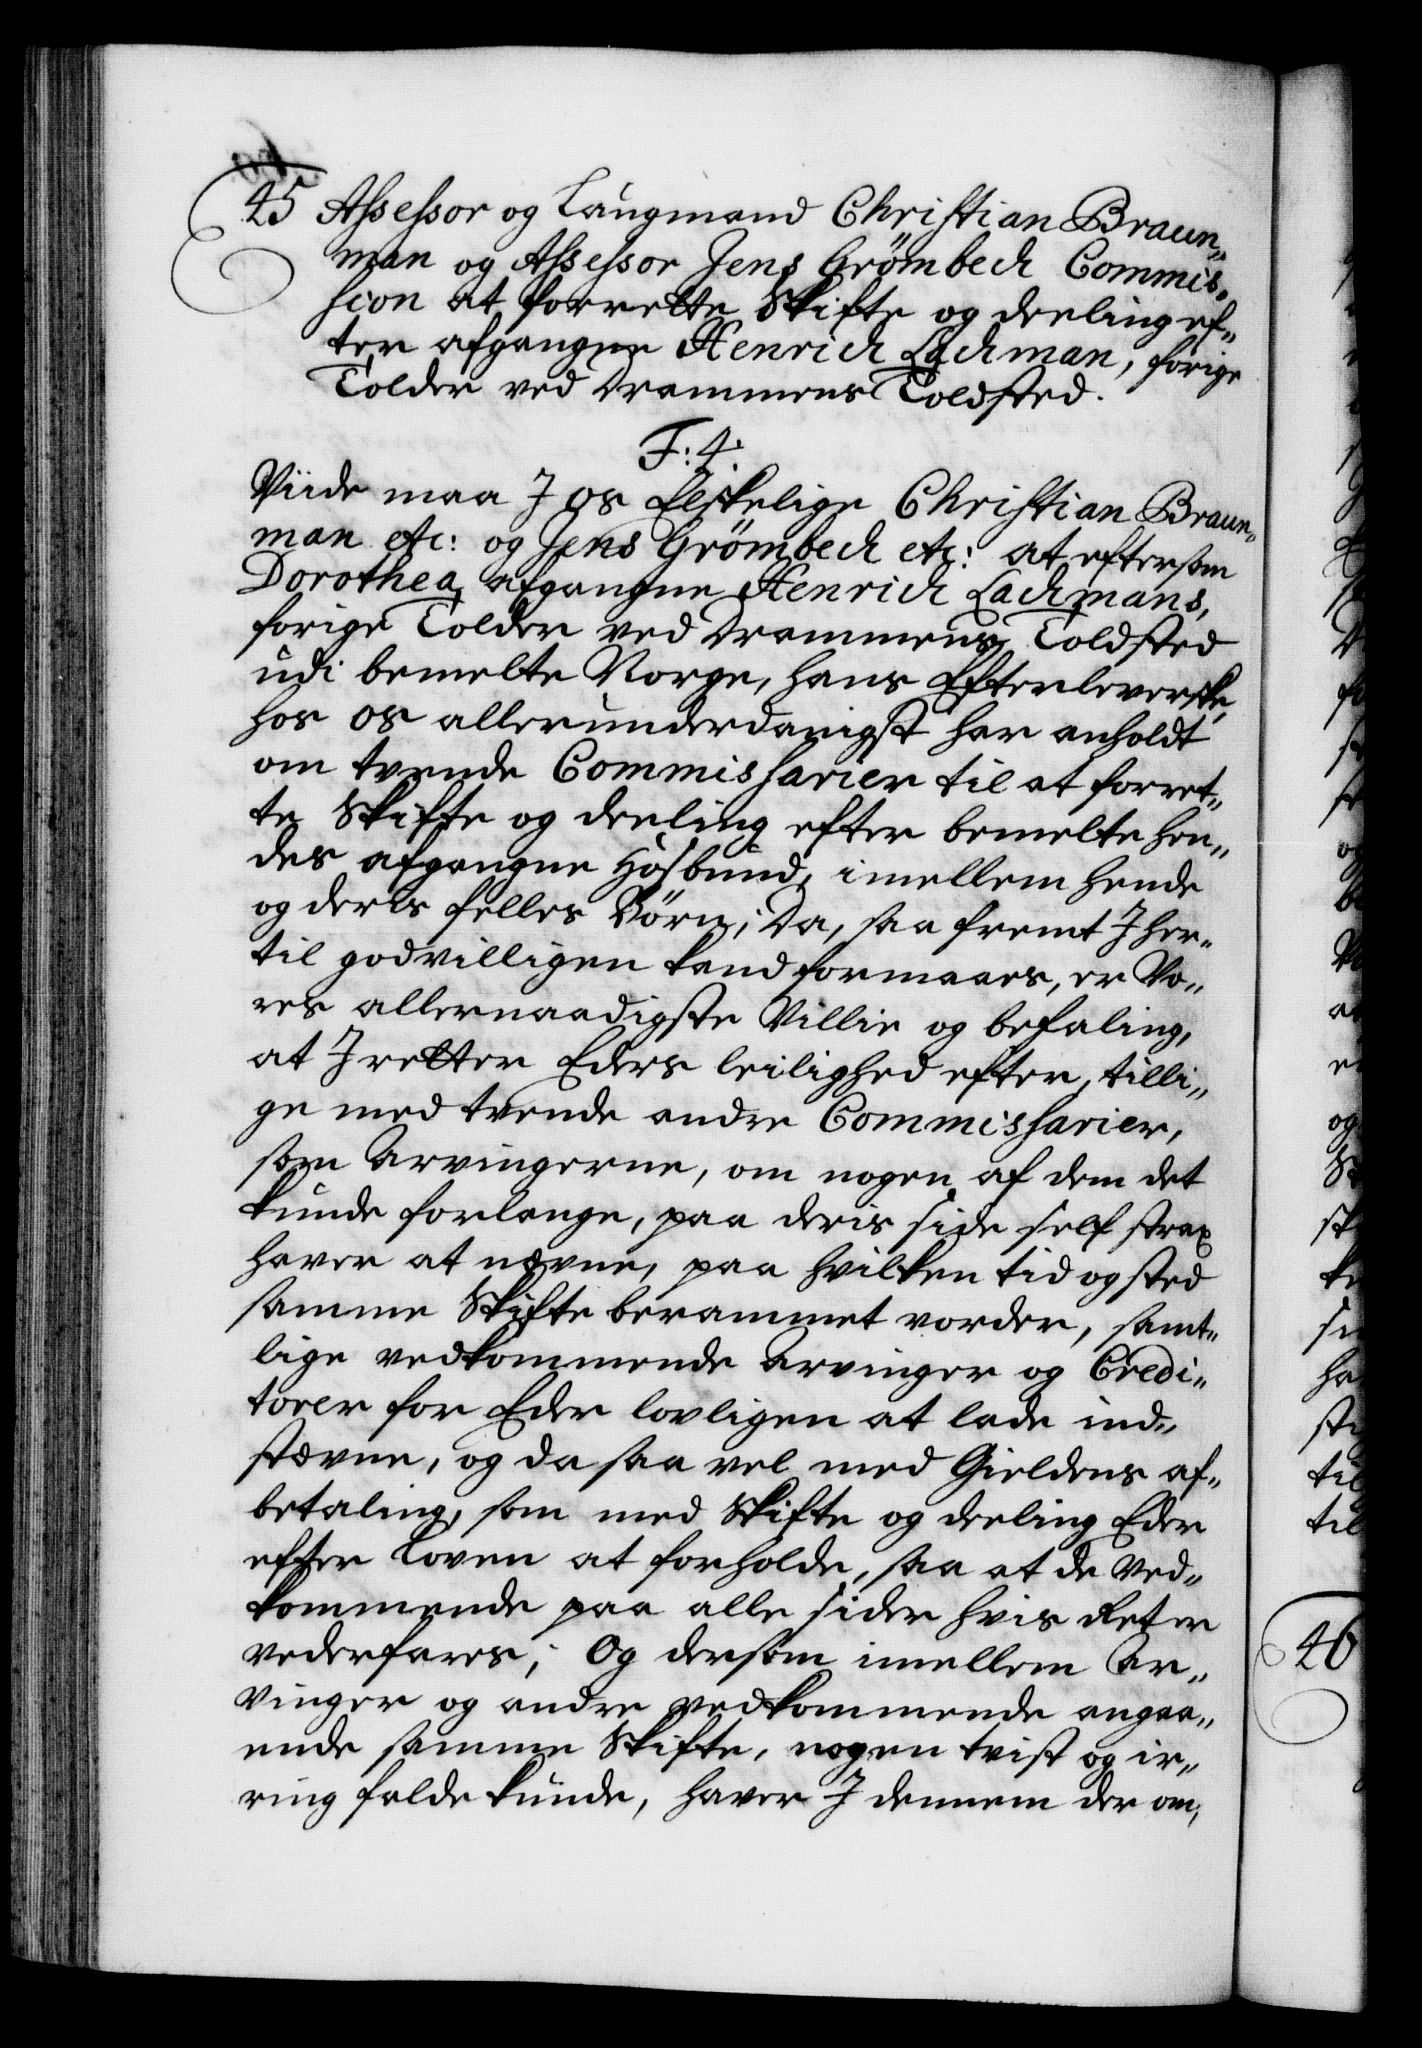 45 Assessor og Laugmand Christian Braun„
man og Assessor Jens Grömbech Commis„
sion at forrette Skifte og deeling ef„
ter afgangne Henrich Lachman, forige
Tolder ved Drammens Toldsted.
F: 4.
Viide maa I os Elskelige Christian Braun„
man etc: og Jens Grömbech etc: at eftersom
Dorothea, afgangne Henrich Lachmans,
forige Tolder ved Drammens Toldsted
udi bemelte Norge, hans Efterleverske,
hos os allerunderdanigst har anholdt
om tvende Commissarier til at forret„
te Skifte og deeling efter bemelte hen„
des afgangne Hosbund, imellem hende
og deris felles Börn; Da, saa fremt I her„
til godvilligen kand formaaes, er Vo„
res allernaadigste Villie og befaling,
at I retter Eders leilighed efter, tilli„
ge med tvende andre Commissarier,
som Arvingerne, om nogen af dem det
kunde forlange, paa deris side self strax
haver at nævne, paa hvilken tid og sted
samme Skifte berammet vorder, samt„
lige vedkommende Arvinger og Credi„
torer for Eder lovligen at lade ind„
stævne, og da saa vel med Gieldens af„
betaling, som med Skifte og deeling Eder
efter Loven at forholde, saa at de Ved„
kommende paa alle sider hvis Ret er
vederfares; Og dersom imellem Ar„
vinger og andre vedkommende angaa„
ende samme Skifte, nogen tvist og ir„
ring falde kunde, haver I dennem der om,
46